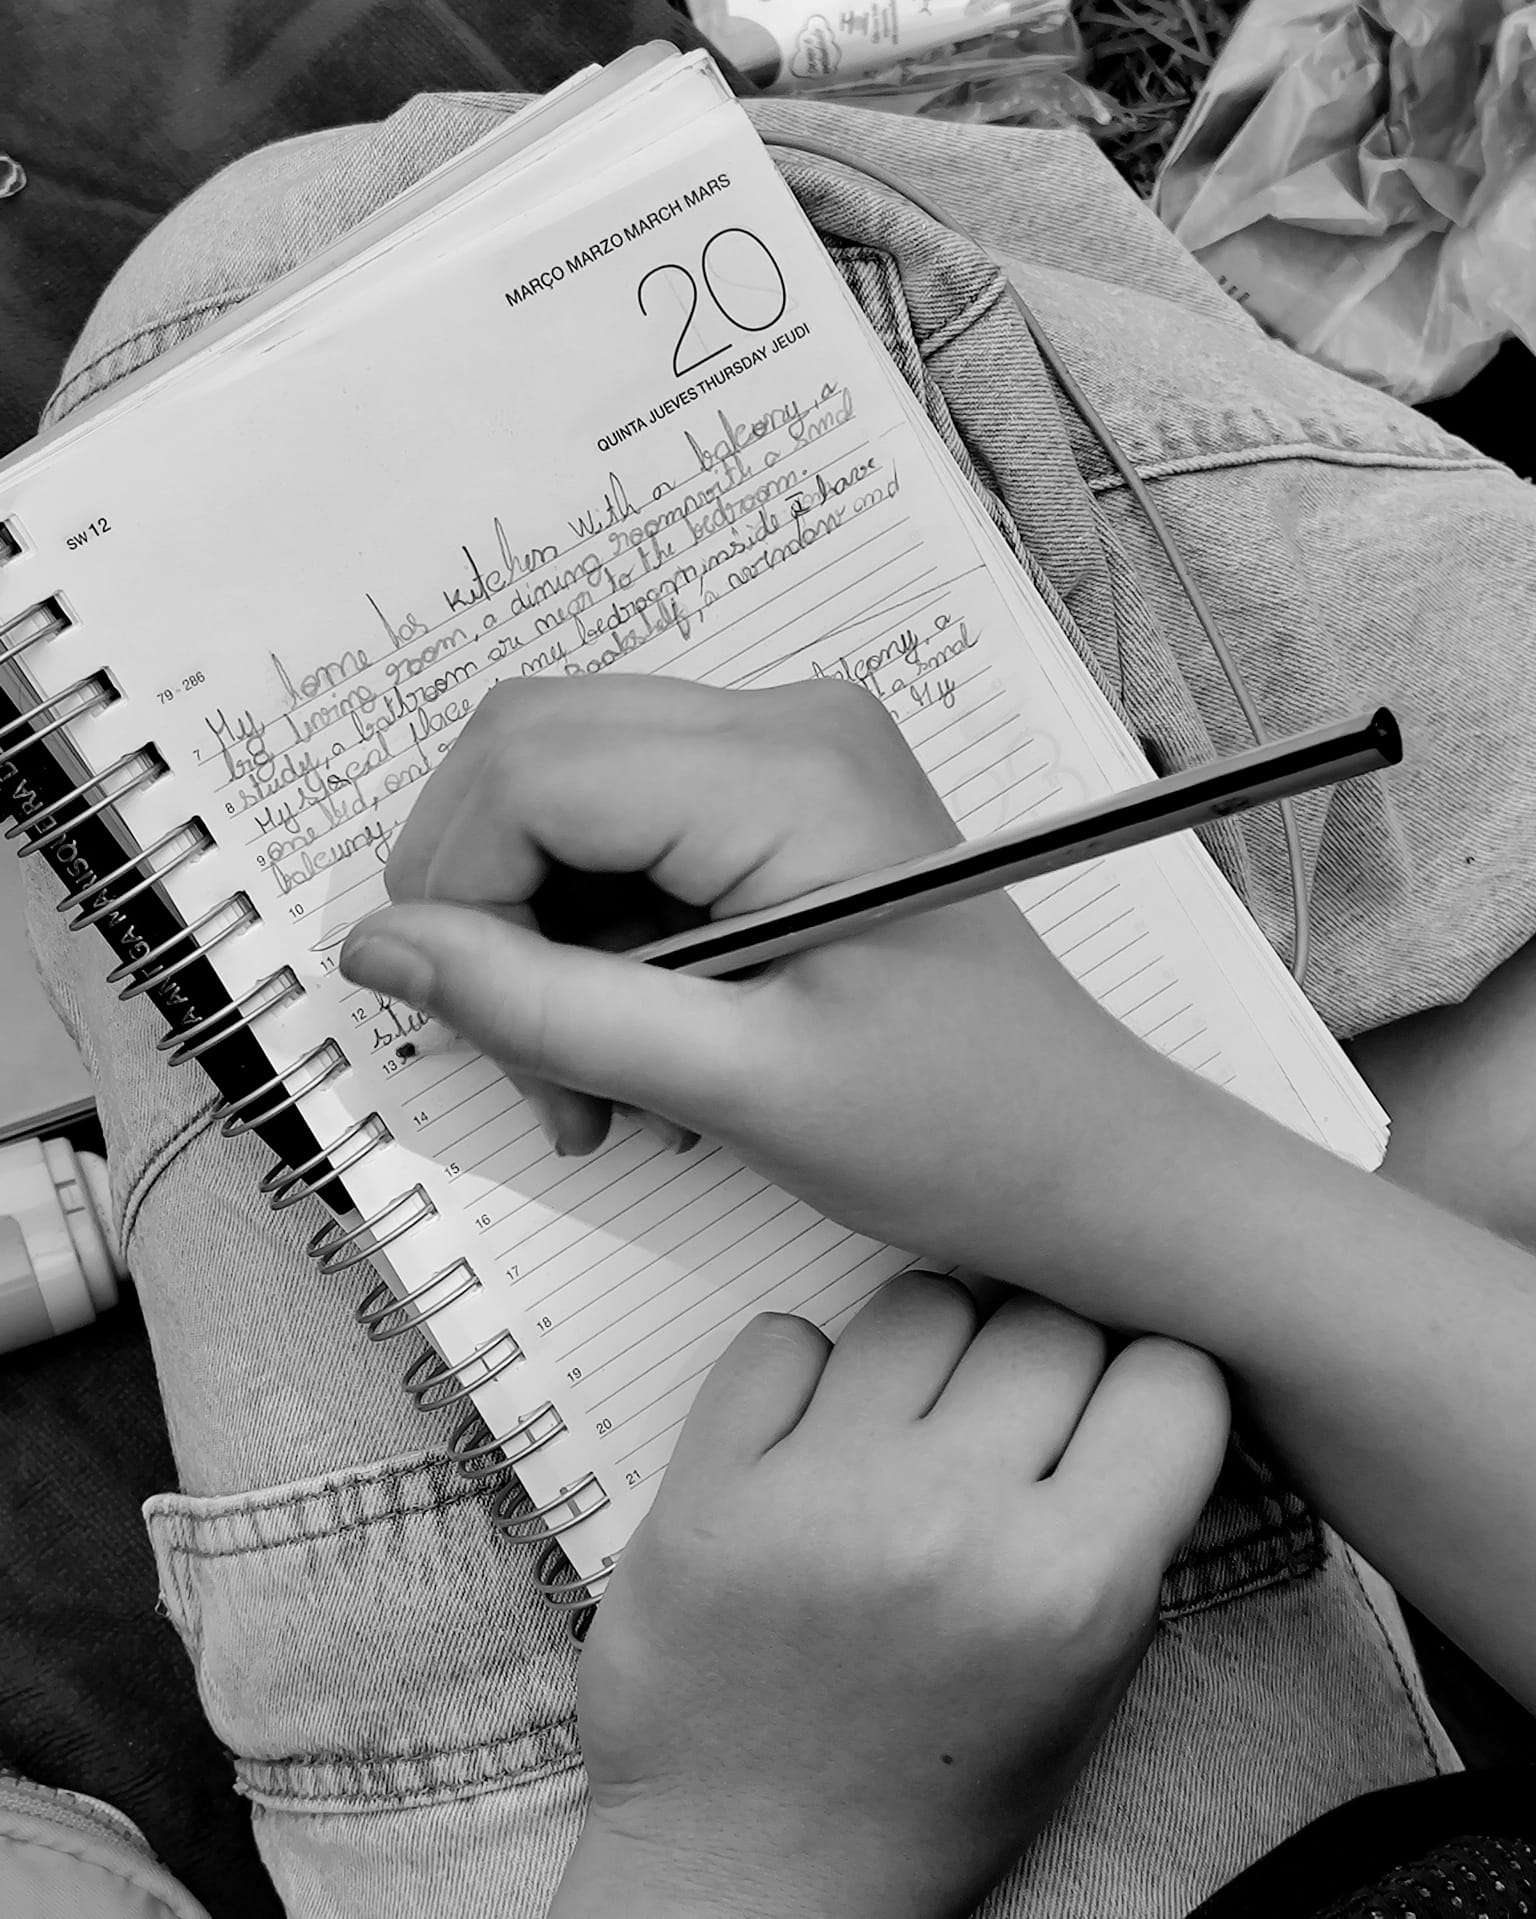 MARÇO MARZO MARCH MARS
20
QUINTA JUEVES THURSDAY JEUDI
SW 12
79 - 286
My home has kitchen with a balcony, a
big living room, a dining room with a smal
study, a bathroom are near to the bedroom.
My special place is my bedroom, inside I have
one bed, one Bookshelf, a window and
balcony.
balcony, a
a smal
My
stu
7
8
9
10
11
12
13
14
15
16
17
18
19
20
21
A ANTIGA MARISQUEIRA D